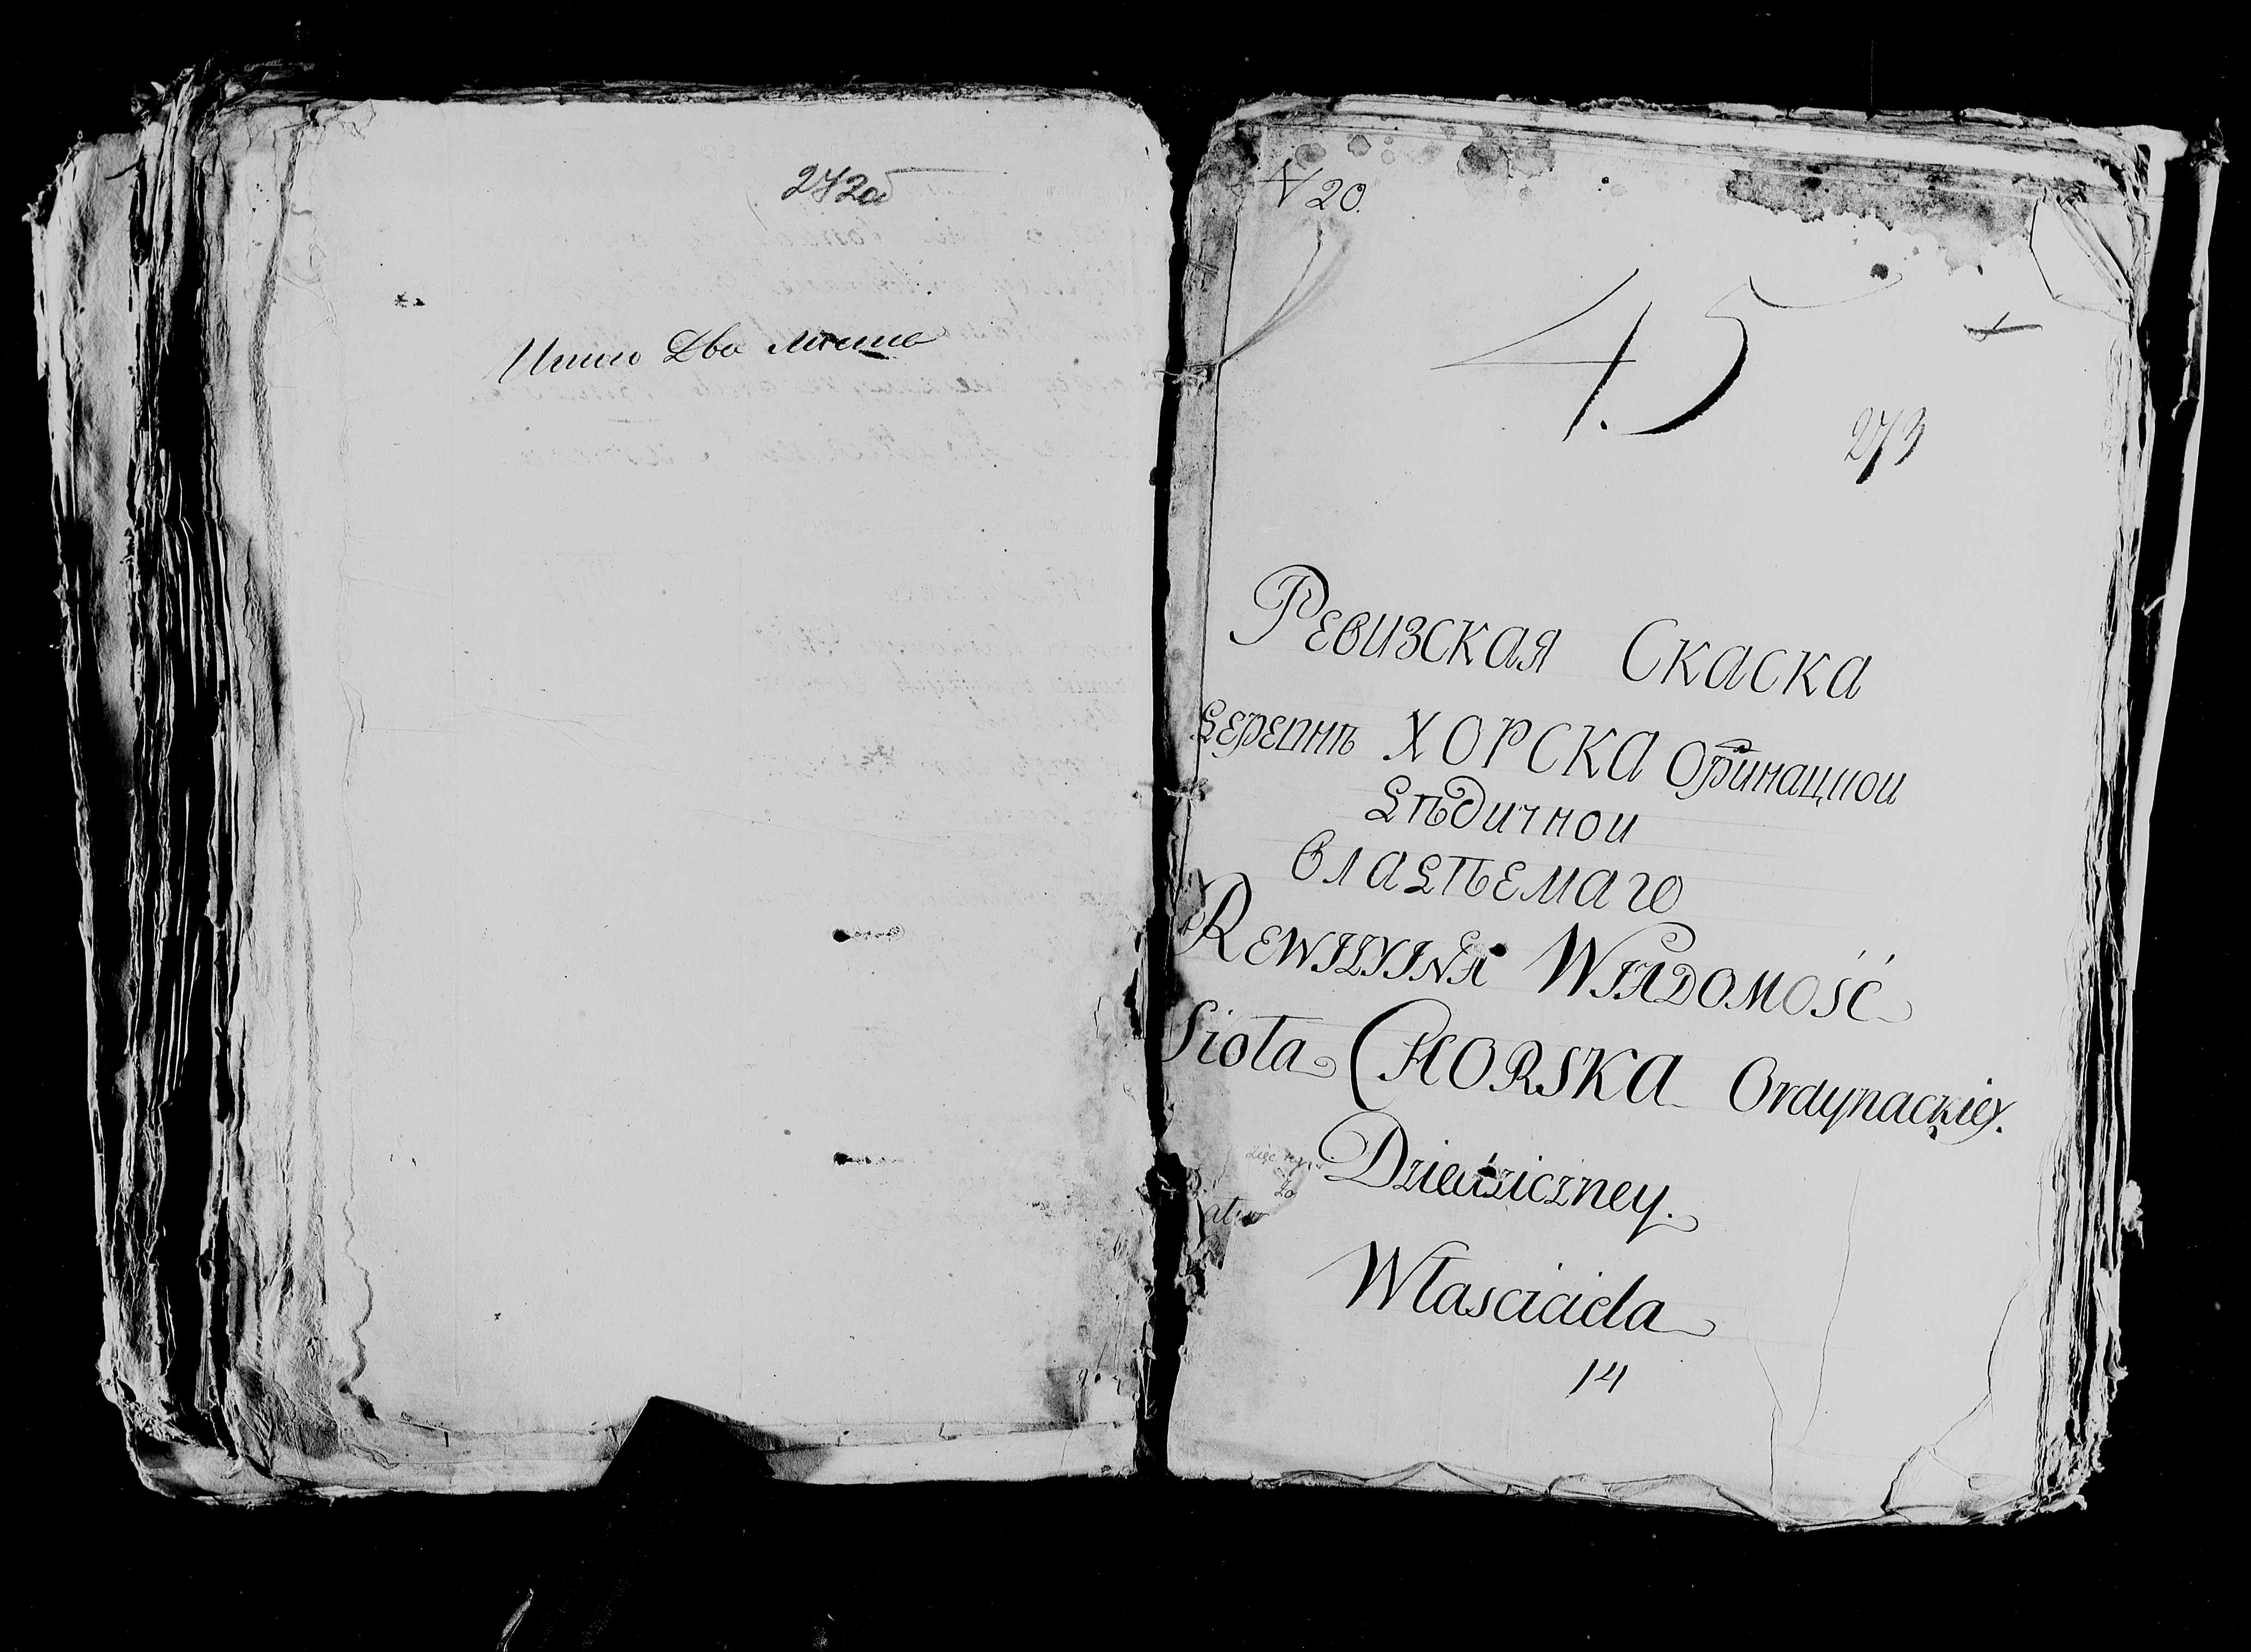 272об
Итого Два листа
№ 20.
45
273
Ревизская Скаска
Деревнѣ ХОРСКА Ординацкои
Дѣдичнои
владѣемаго
REWIZYINA WIADOMOŚĆ
Sioła CHORSKA Ordynackiey.
Dziedziczney.
Własciciela
14